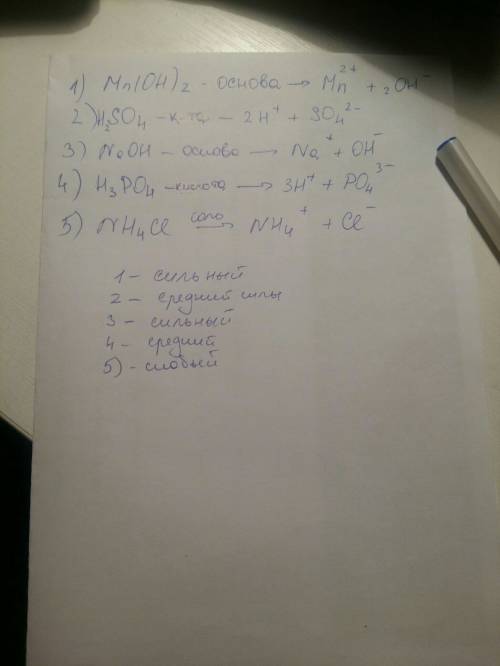 1) Mn(OH)2 - основа → Mn²⁺ + 2OH⁻
2) H2SO4 - к-та - 2H⁺ + SO4²⁻
3) NaOH - основа → Na⁺ + OH⁻
4) H3PO4 - кислота → 3H⁺ + PO4³⁻
5) NH4Cl соль → NH4⁺ + Cl⁻
1 - сильный
2 - средний силы
3 - сильный
4 - средний
5) - слабый